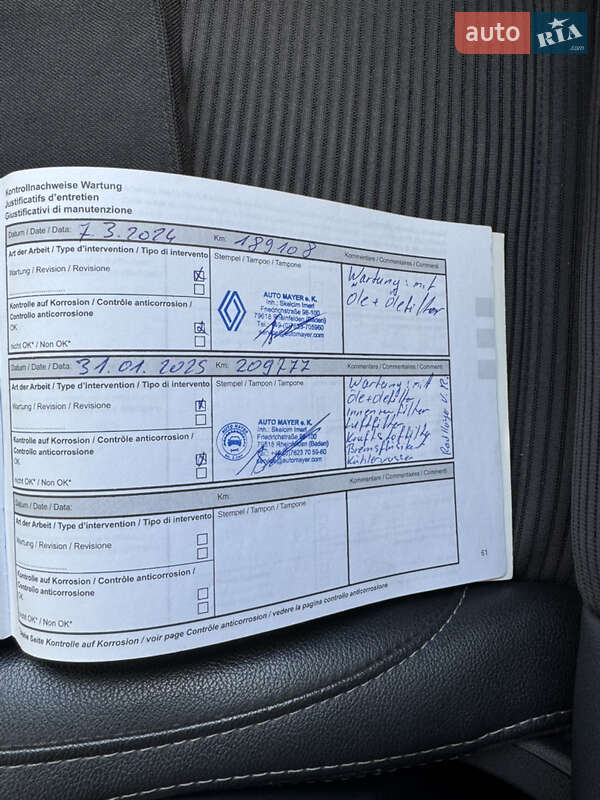 auto RIA .com
Kontrollnachweise Wartung
Justificatifs d'entretien
Giustificativi di manutenzione
Datum / Date / Data: 7.3.2024 Km: 189108
Art der Arbeit / Type d'intervention / Tipo di intervento
Stempel / Tampon / Tampone
Kommentare / Commentaires / Commenti
Wartung / Revision / Revisione
Kontrolle auf Korrosion / Contrôle anticorrosion /
Controllo anticorrosione
OK
nicht OK* / Non OK*
AUTO MAYER e. K.
Inh.: Skelcim Imeri
Friedrichstraße 98-100
79618 Rheinfelden (Baden)
Wartung: mit
Öle + Ölfilter
Datum / Date / Data: 31.01.2025 Km: 209777
Art der Arbeit / Type d'intervention / Tipo di intervento
Stempel / Tampon / Tampone
Kommentare / Commentaires / Commenti
Wartung / Revision / Revisione
Kontrolle auf Korrosion / Contrôle anticorrosion /
Controllo anticorrosione
OK
nicht OK* / Non OK*
AUTO MAYER e. K.
Inh.: Skelcim Imeri
Friedrichstraße 98-100
79618 Rheinfelden (Baden)
Wartung: mit
Öle + Ölfilter
Innenraumfilter
Luftfilter
Kraftstoffilter
Kühlwasser
Datum / Date / Data: Km:
Art der Arbeit / Type d'intervention / Tipo di intervento
Stempel / Tampon / Tampone
Kommentare / Commentaires / Commenti
Wartung / Revision / Revisione
Kontrolle auf Korrosion / Contrôle anticorrosion /
Controllo anticorrosione
OK
nicht OK* / Non OK*
Seite Kontrolle auf Korrosion / voir page Contrôle anticorrosion / vedere la pagina controllo anticorrosione
61